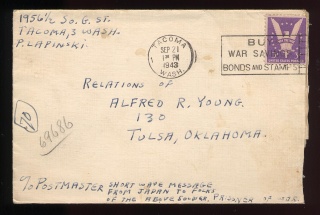 1956½ SO. G. ST.
TACOMA, 3 WASH.
P. LAPINSKI.
TACOMA
SEP 21
1 PM
1943
WASH.
BU
WAR SAV
BONDS AND STAMPS
RELATIONS OF
ALFRED R. YOUNG.
130
TULSA, OKLAHOMA.
10
69686
C/O POSTMASTER SHORT WAVE MESSAGE
FROM JAPAN TO FOLKS
OF THE ABOVE SOLDIER, PRISONER OF WAR